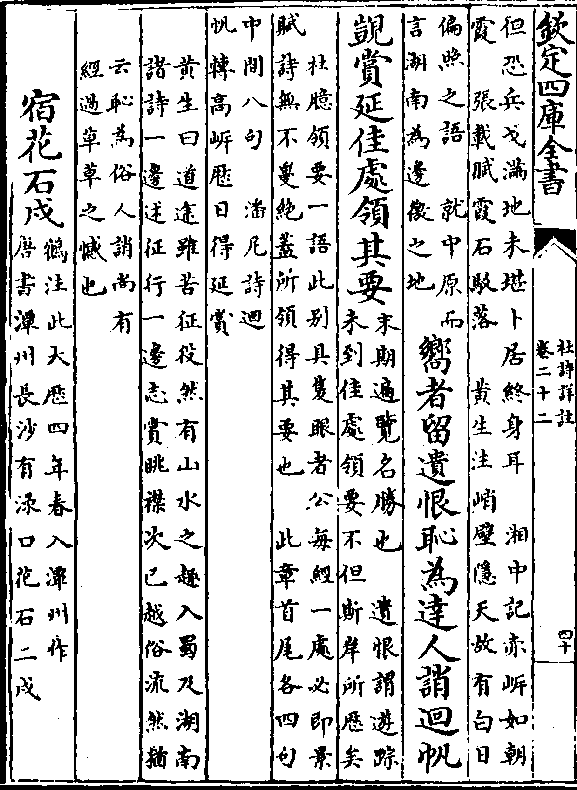 欽定四庫全書
杜詩詳註
卷二十二
四十
但恐兵戈滿地未堪卜居終身耳 湘中記赤岍如朝
霞 張載賦霞石駮落 黄生注峭壁隱天故有白日
偏照之語 就中原而
言湖南為邊徼之地
嚮者留遺恨恥為達人誚迴帆
覬賞延佳處領其要
末期遍覽名勝也 遺恨謂遊踪
未到佳處領要不但斯岸所歷矣
杜臆領要一語此别具隻眼者公每經一處必即景
賦詩無不敻絶蓋所領得其要也 此章首尾各四句
中間八句 潘尼詩迴
帆轉高岍歷日得延賞
黄生曰道途雖苦征役然有山水之趣入蜀及湖南
諸詩一邊述征行一邊志賞眺襟次已越俗流然猶
云恥為俗人誚尚有
經過草草之憾也
宿花石戍
鶴注此大歷四年春入潭州作
唐書潭州長沙有渌口花石二戍